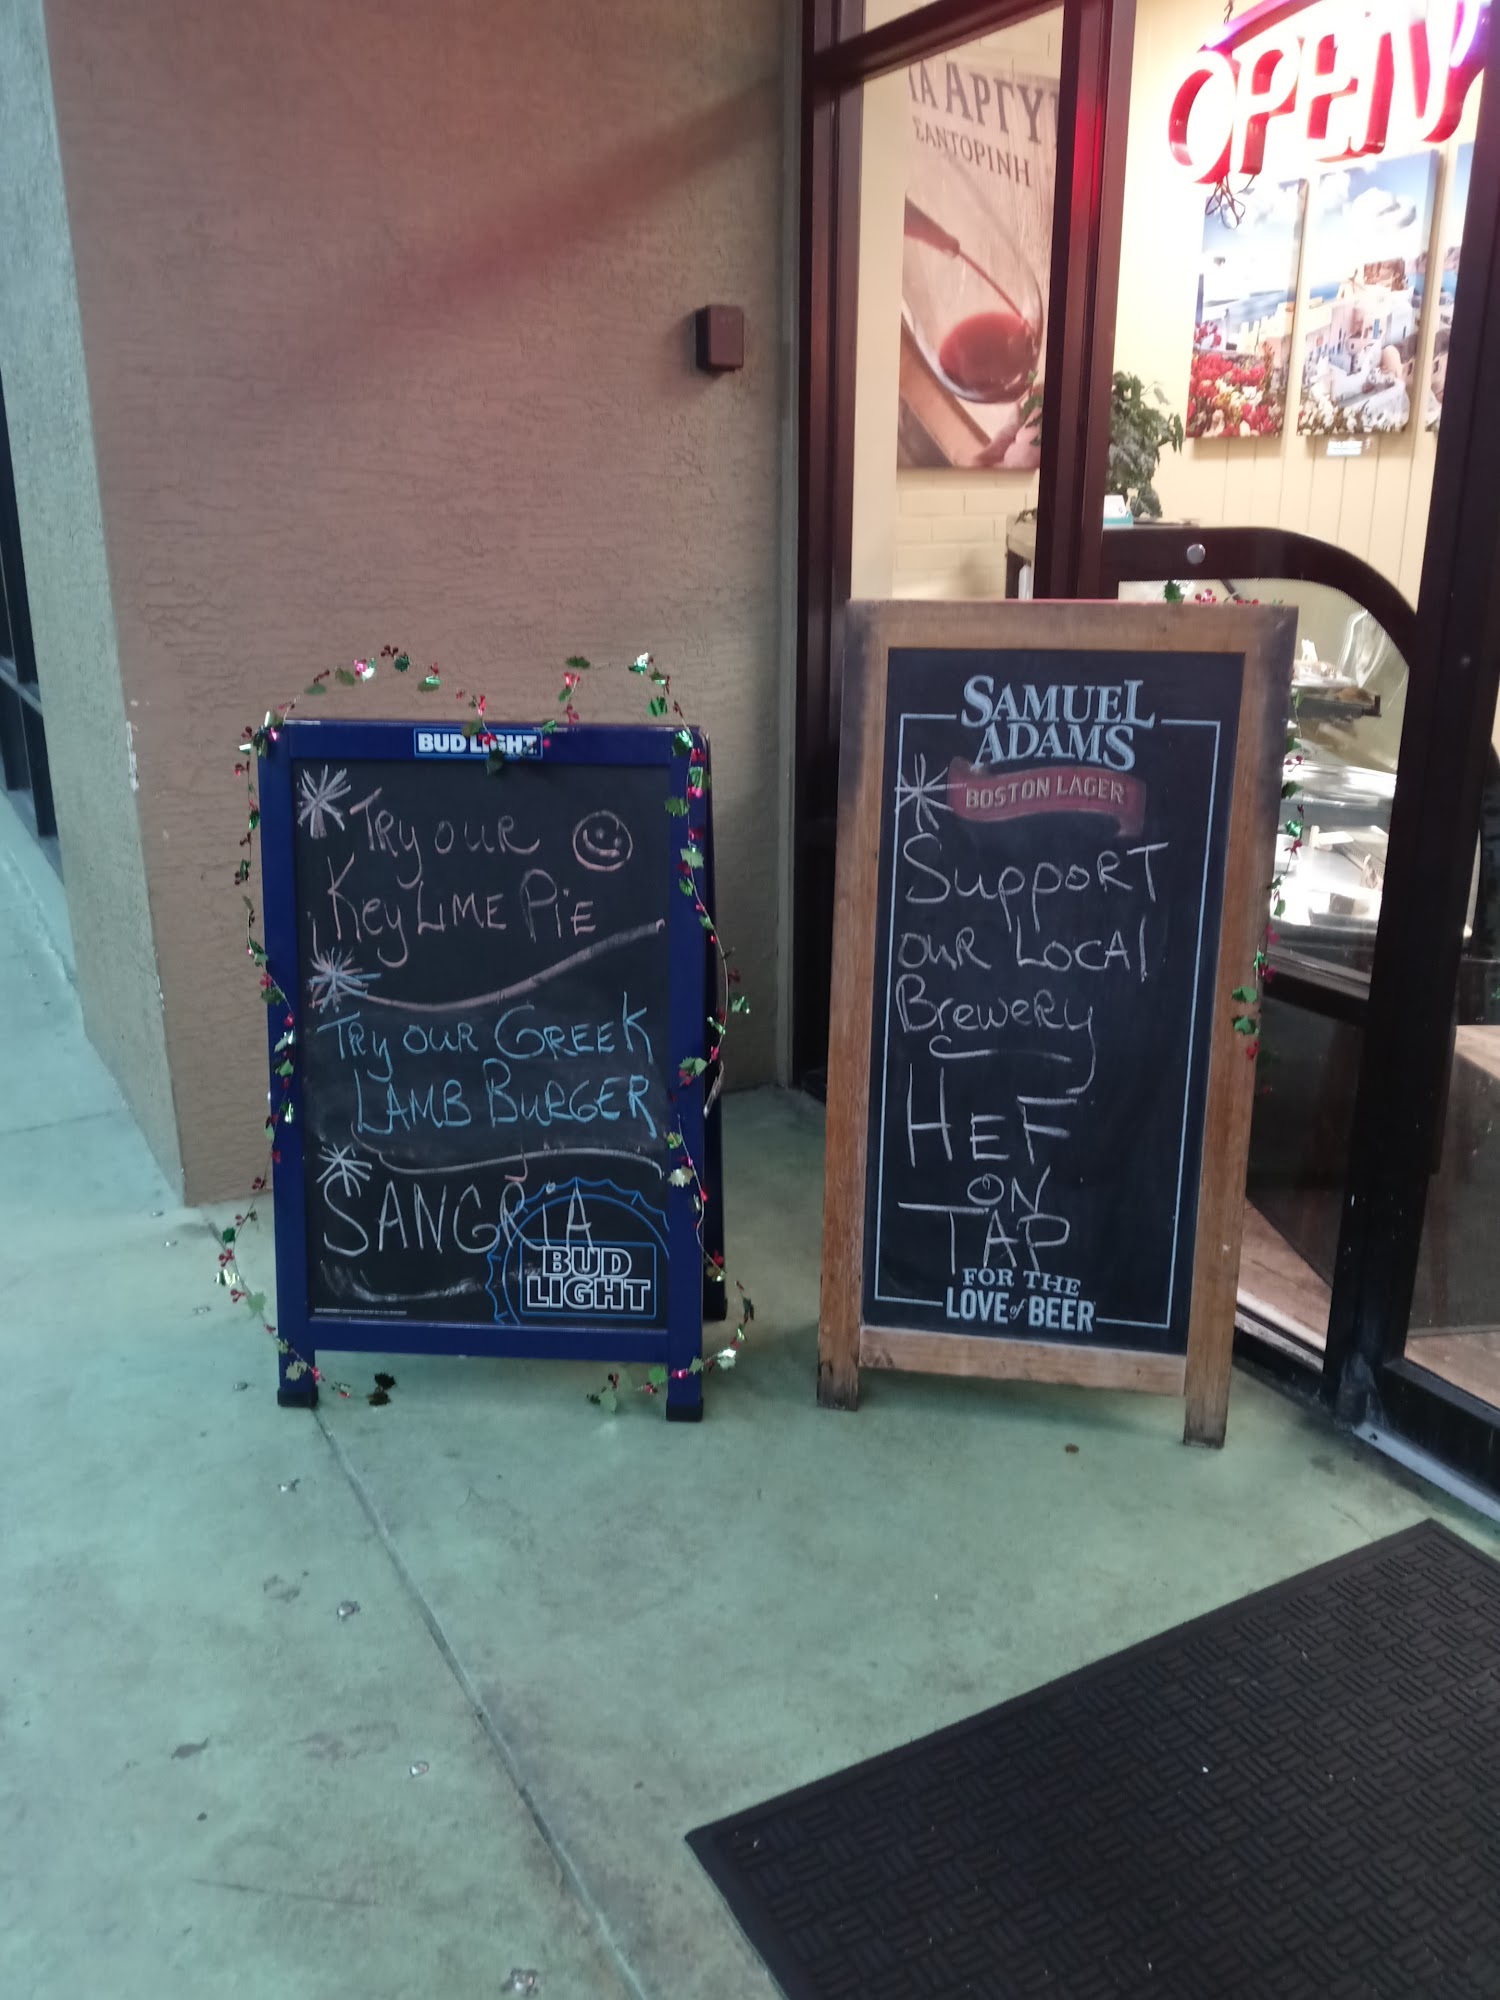 OPEN
ΑΡΓΥ
ΣΑΝΤΟΡΙΝΗ
BUD LIGHT
TRY OUR
KEY LIME PIE
TRY OUR GREEK
LAMB BURGER
SANGRIA
BUD
LIGHT
SAMUEL
ADAMS
BOSTON LAGER
SUPPORT
OUR LOCAL
BREWERY
HEF
ON
TAP
FOR THE
LOVE of BEER